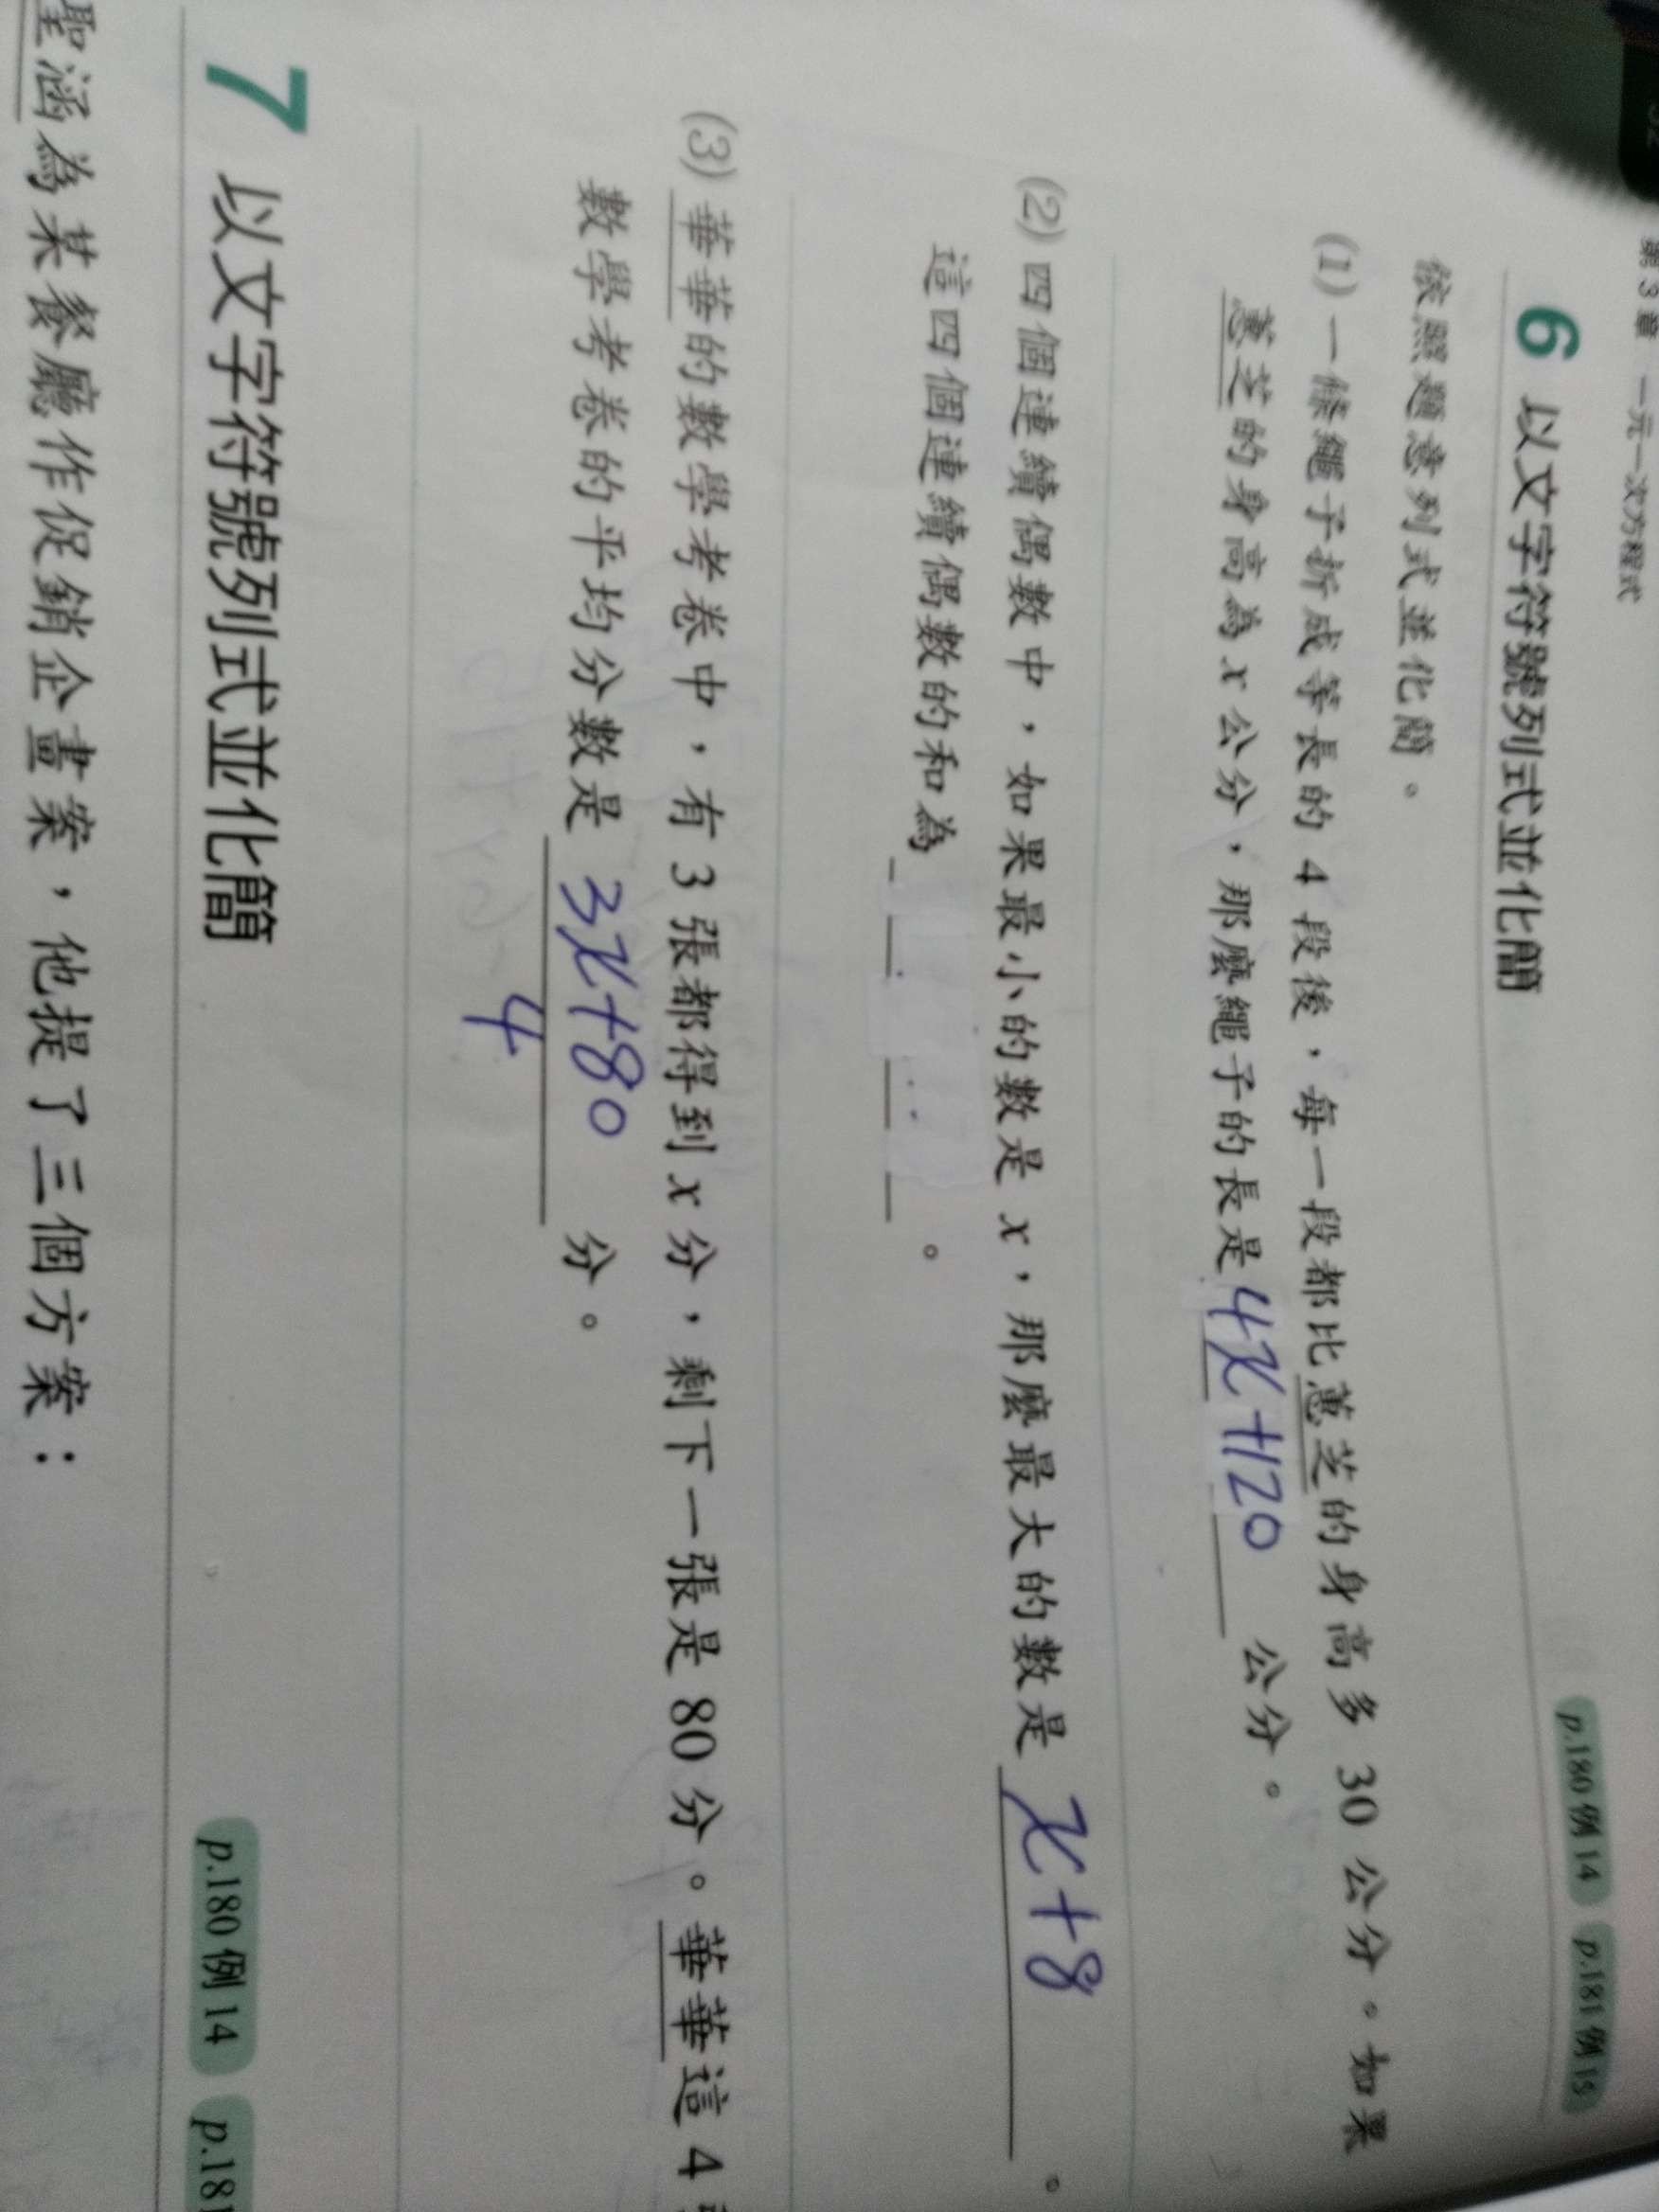 第3章 一元一次方程式
6 以文字符號列式並化簡 p.180例14 p.181例15
依照題意列式並化簡。
(1)一條繩子折成等長的4段後，每一段都比蕙芝的身高多30公分。如果
蕙芝的身高為x公分，那麼繩子的長是4x+120公分。
(2)四個連續偶數中，如果最小的數是x，那麼最大的數是x+8。
這四個連續偶數的和為 。
(3)華華的數學考卷中，有3張都得到x分，剩下一張是80分。華華這4
數學考卷的平均分數是 3x+80 分。
4
7 以文字符號列式並化簡 p.180例14 p.181
聖涵為某餐廳作促銷企畫案，他提了三個方案：